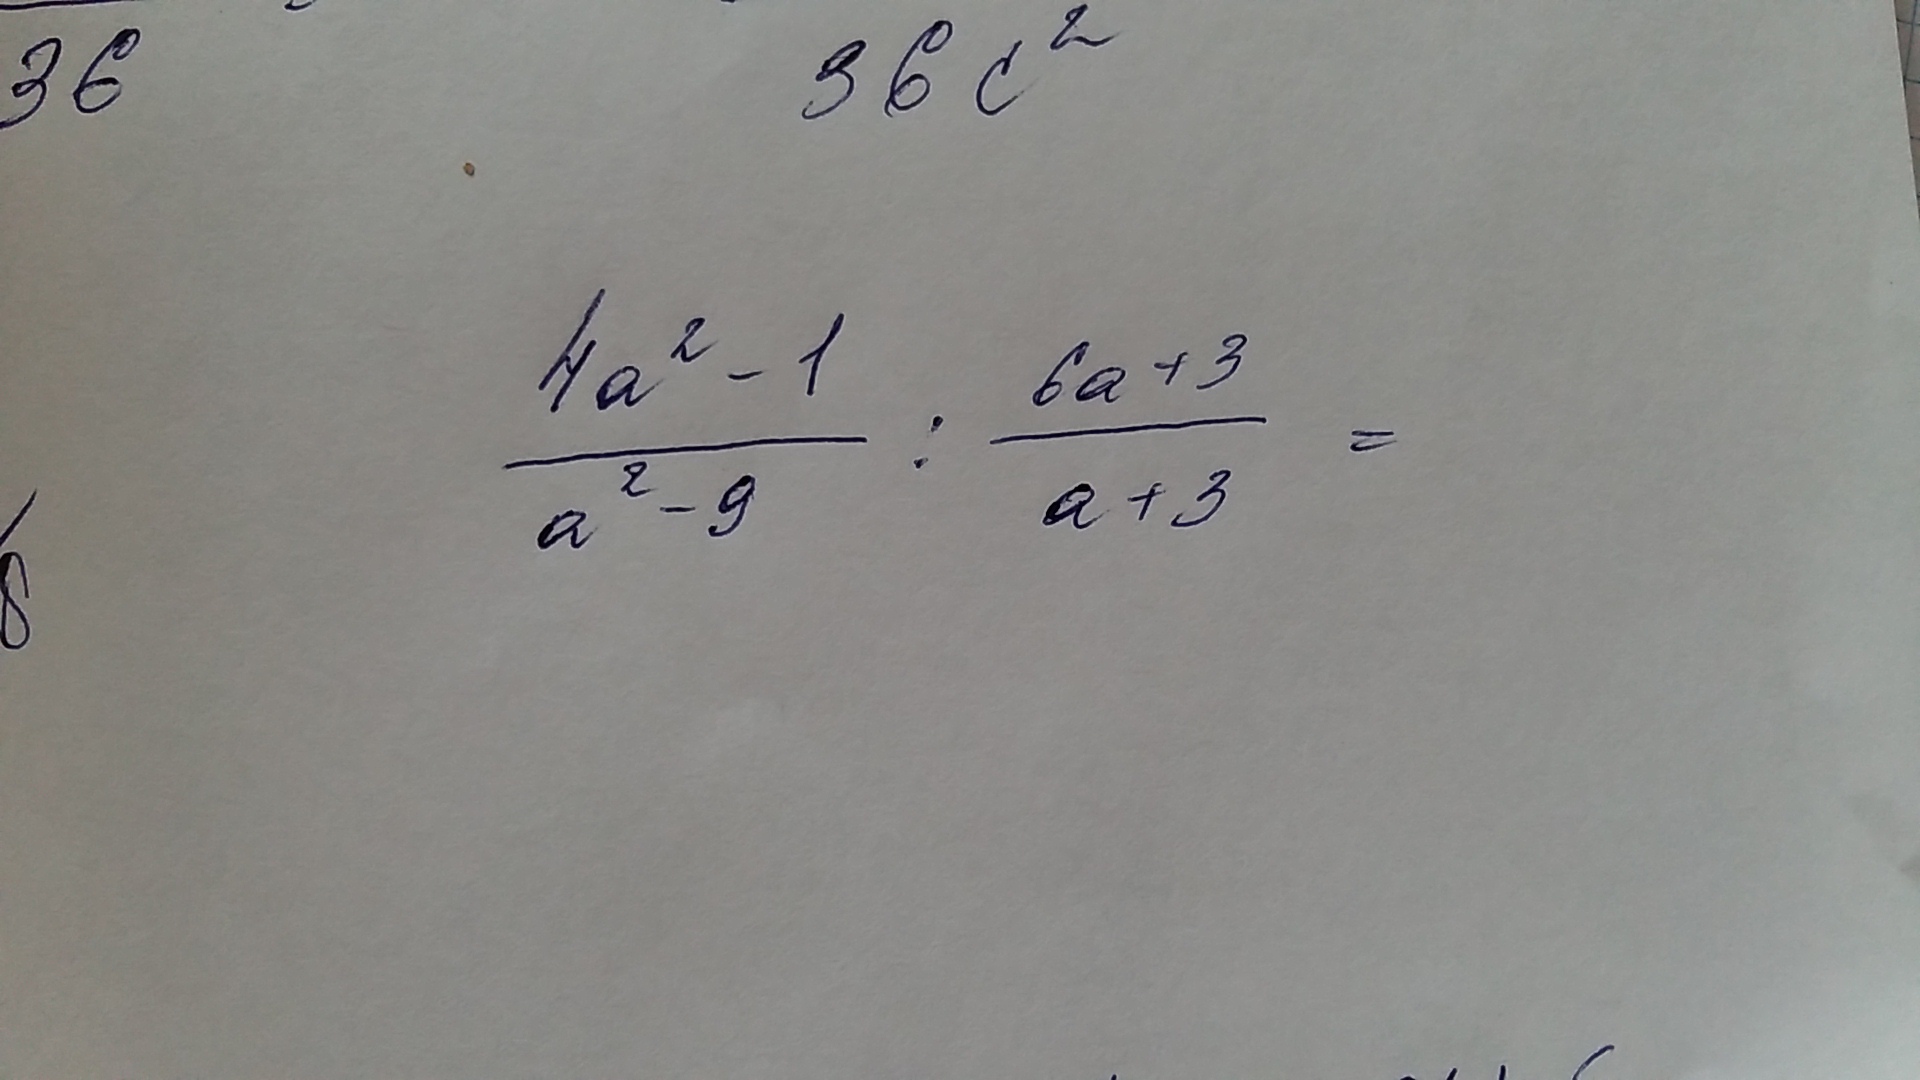 36 36c²
4a² - 1 / a² - 9 : 6a + 3 / a + 3 =
8